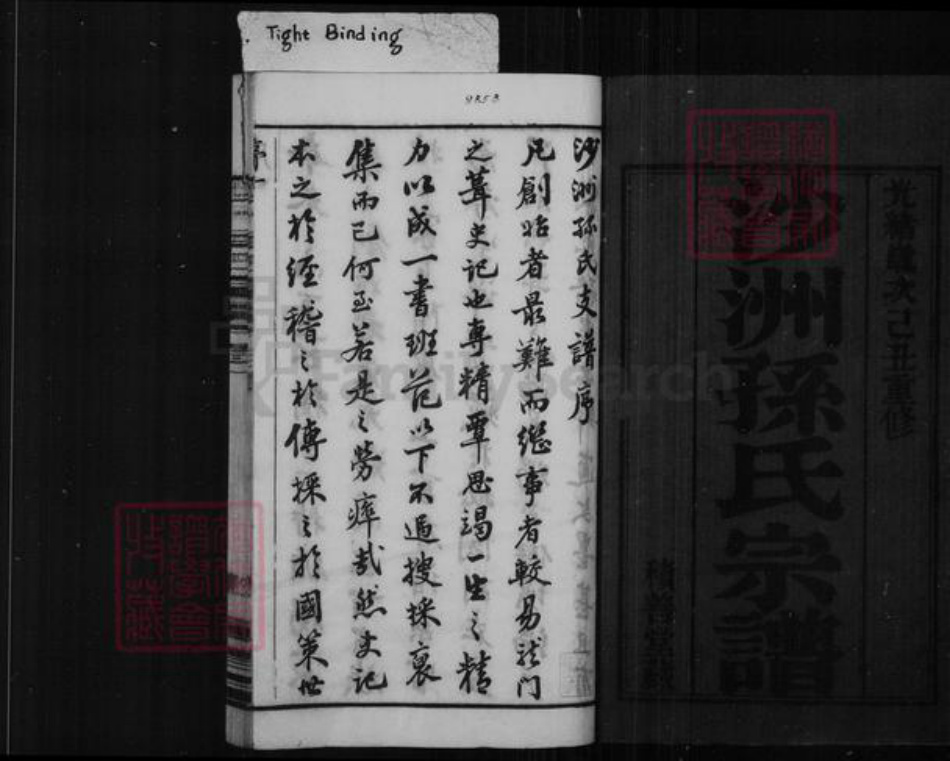 Tight Binding
9853
光緒歲次己丑重修
沙洲孫氏宗譜
積善堂藏
沙洲孫氏支譜序
凡創始者最難而繼事者較易龍門
之葺史記也專精覃思竭一生之精
力以成一書班范以下不過搜採裒
集而已何至若是之勞瘁哉然史記
本之於經稽之於傳採之於國策世
序
FamilySearch